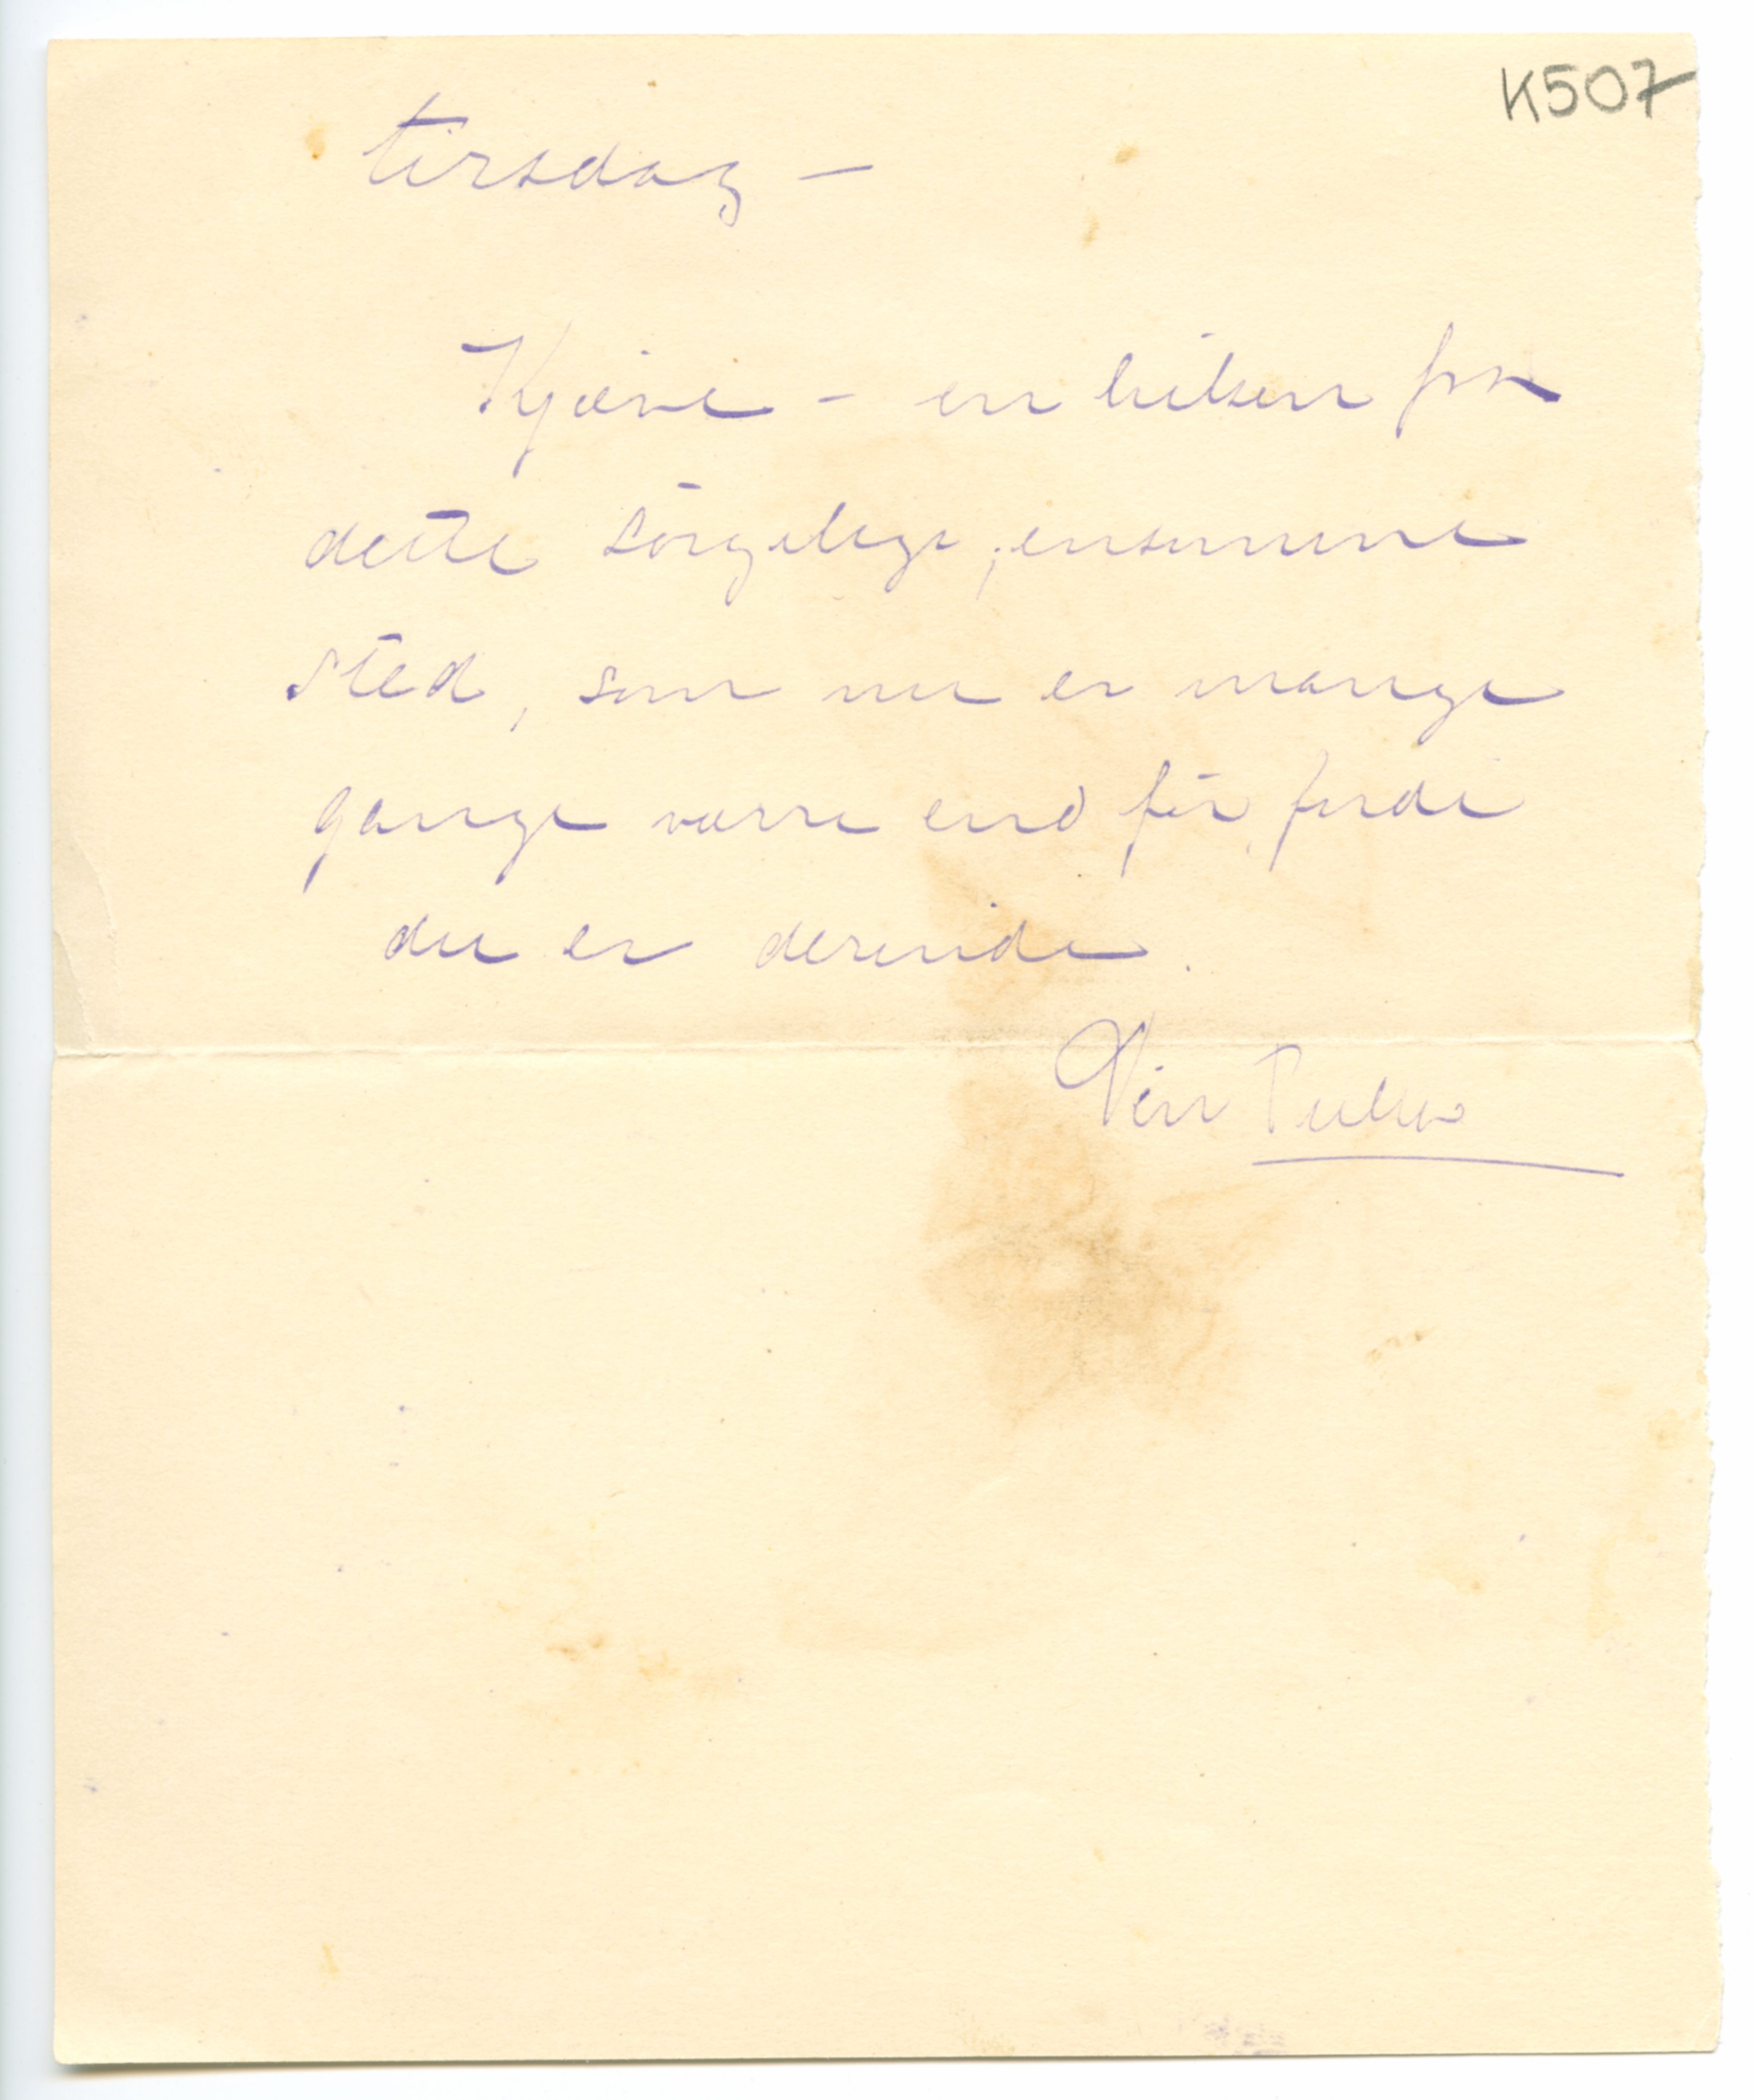 K507
tirsdag –
Kjære – en hilsen fra
dette sørgelige, ensomme
sted, som nu er mange
gange værre end før, fordi
du er derinde.
Din Tulla